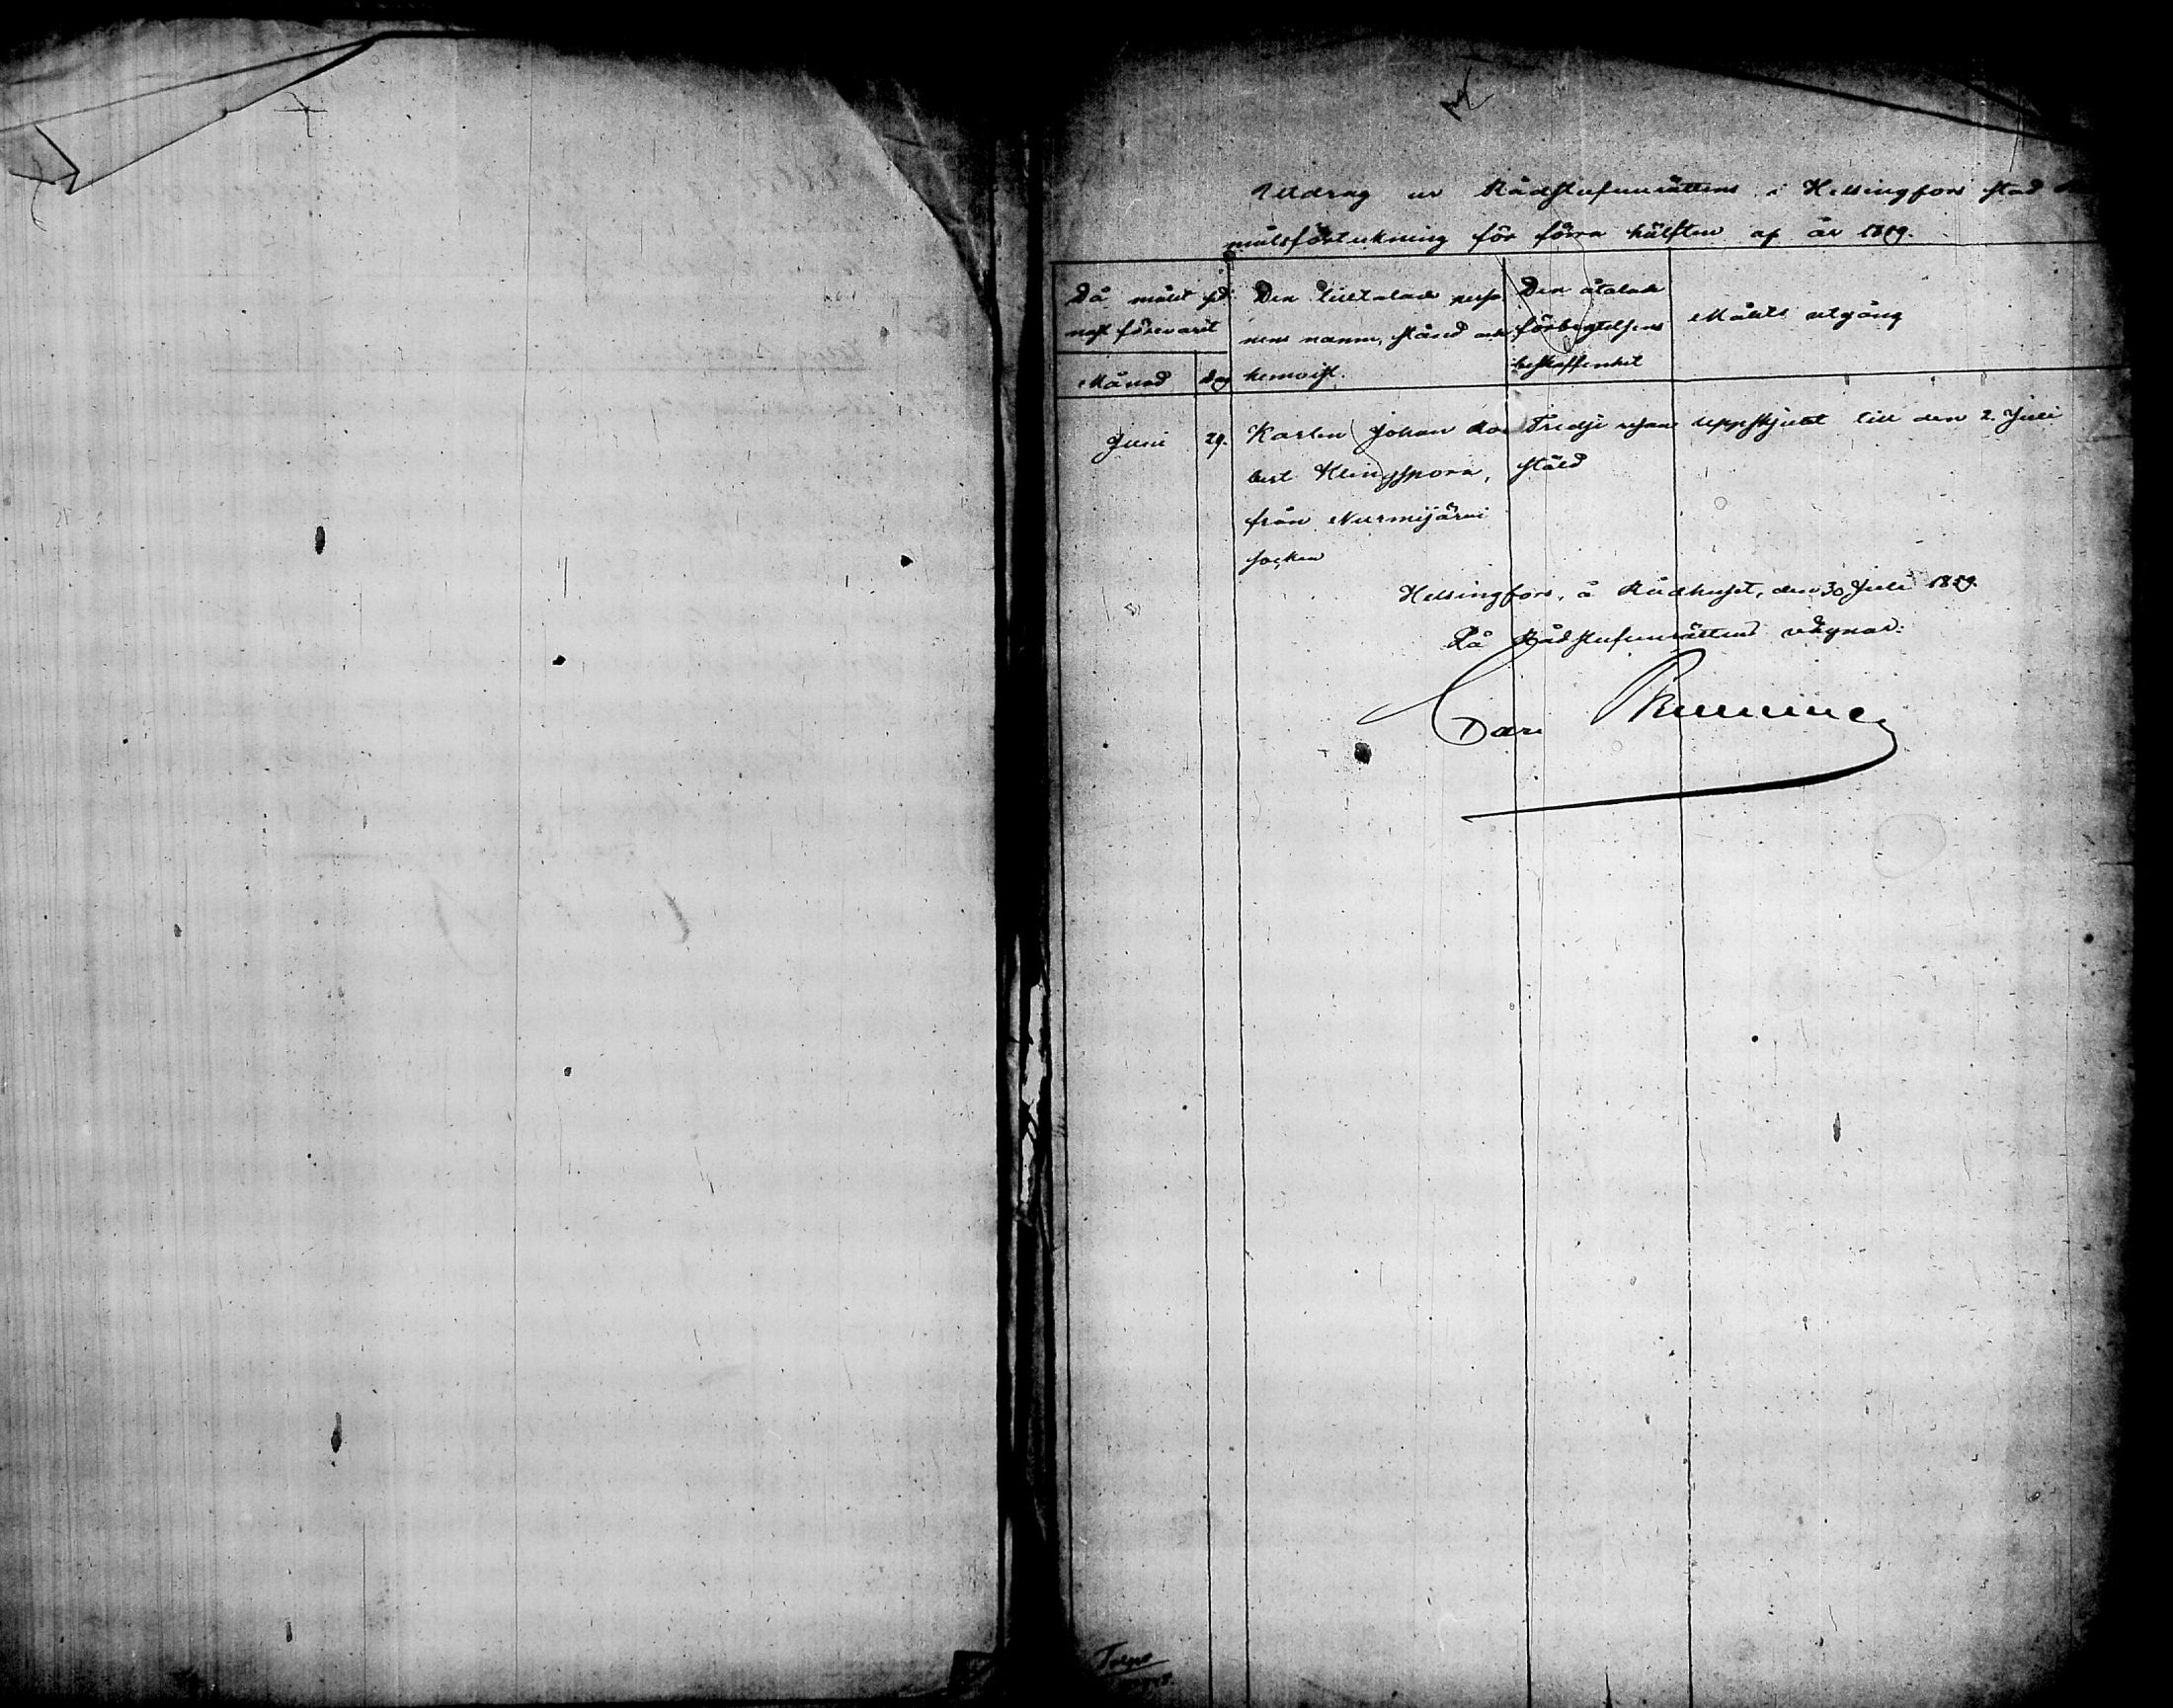 Utdrag ur Rådstufvurättens i Helsingfors stad
målsförteckning för förra hälften af år 1889.
Då målet sed
nast förevarit
Månad Dag
Den tilltalade perso
nens namn, stånd och
hemvist.
Den åtalade
förbrytelsens
beskaffenhet
Målets utgång
Juni 29.
Karlen Johan Ro
bert Klingspora,
från Nurmijärvi
socken
Tredje resan
stöld
Uppskjutet till den 2. Juli
Helsingfors, å Rådhuset, den 30 Juli 1889.
På Rådstufvurättens vägnar: